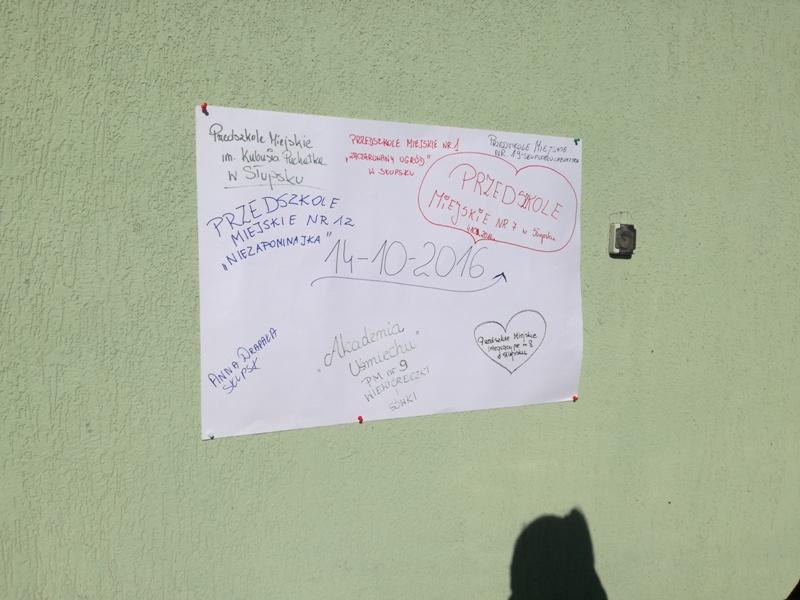 Przedszkole Miejskie
im. Kubusia Puchatka
w Słupsku
PRZEDSZKOLE MIEJSKIE NR 1
„ZACZAROWANY OGRÓD"
W SŁUPSKU
PRZEDSZKOLE MIEJSKIE
NR. 19
PRZEDSZKOLE
MIEJSKIE NR 7 w Słupsku
PRZEDSZKOLE
MIEJSKIE NR 12
„NIEZAPOMINAJKA"
14-10-2016
ANNA DRAPAŁA
SŁUPSK
„Akademia
Uśmiechu"
PM nr 9
WIEWIÓRECZKI
I
SÓWKI
Przedszkole Miejskie
nr 8
Słupsku